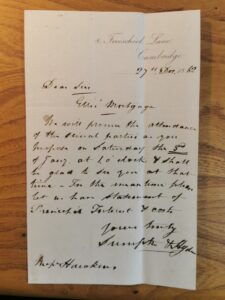 Lane,
Cambridge,
27th Dec 1880
Dear Sir
Ellis' Mortgage
We will procure the attendance
of the several parties as you
propose on Saturday the
of Jany at 1 o'clock & shall
be glad to see you at that
time - In the meantime please
let us have Statement of
Principal Interest & costs
Yours truly